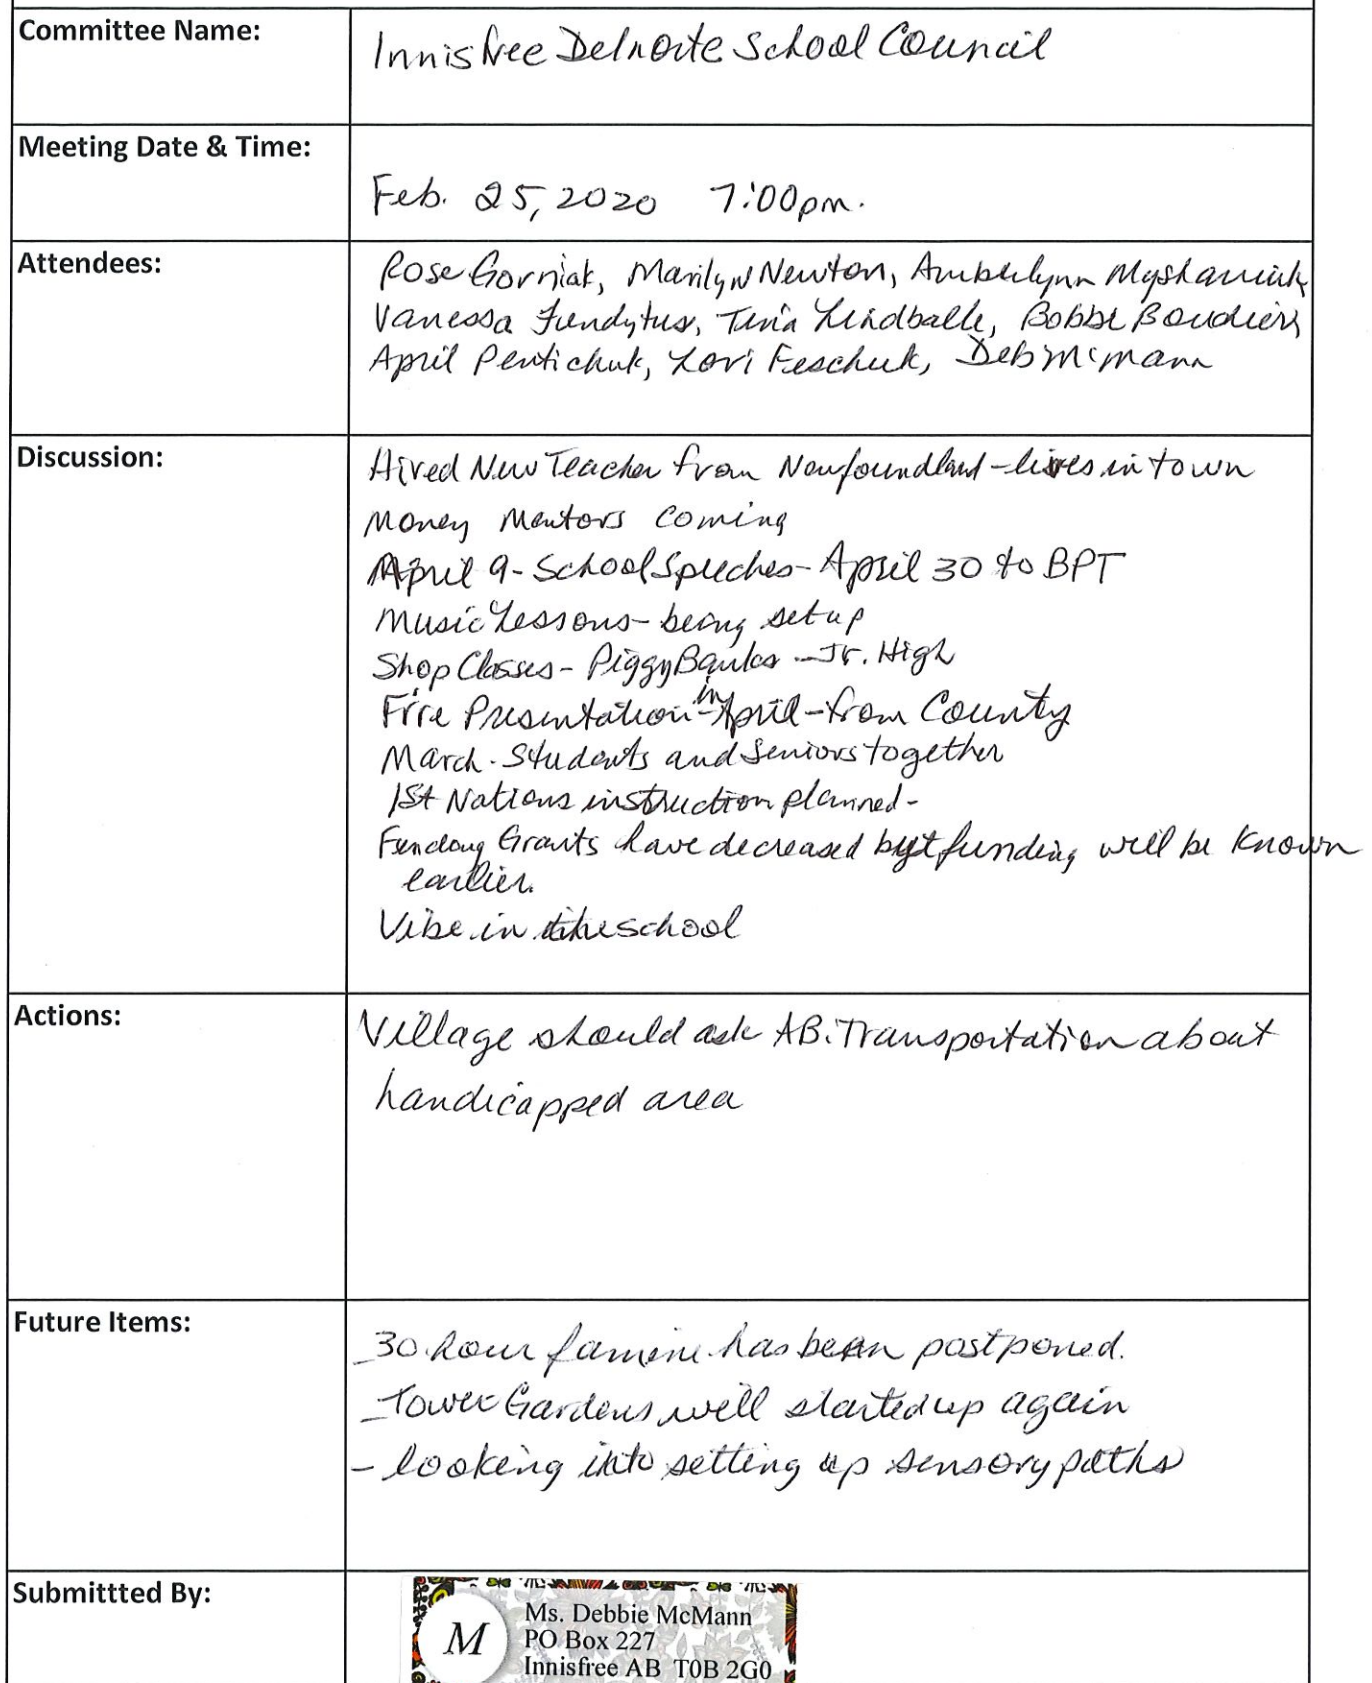 Committee Name:
Innisfree Delnorte School Council
Meeting Date & Time:
Feb. 25, 2020 7:00pm.
Attendees:
Rose Gorniak, Marilyn Newton, Amberlynn
Vanessa Tina Lindballe, Bobbi
April Lori Feschuk, Deb McMann
Discussion:
Hired New Teacher from Newfoundland - lives in town
Money Mentors Coming
April 9 - School Speeches - April 30 to BPT
Music Lessons - being set up
Shop Classes - Piggy Banks - Jr. High
Fire Presentation - in April - from County
March - Students and Seniors together
1st Nations instruction planned -
Grants have decreased but funding will be known
earlier.
Vibe in the school
Actions:
Village should ask AB. Transportation about
handicapped area
Future Items:
- 30 hour famine has been postponed.
- Tower Gardens will started up again
- looking into setting up sensory paths
Submittted By:
M
Ms. Debbie McMann
PO Box 227
Innisfree AB T0B 2G0